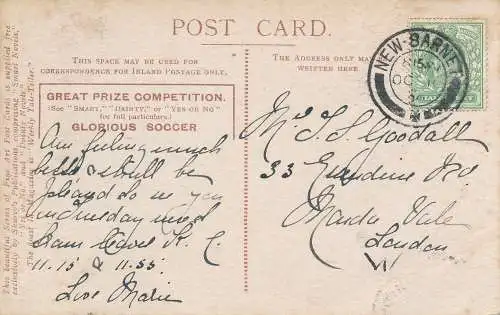 POST CARD.
THIS SPACE MAY BE USED FOR
CORRESPONDENCE FOR INLAND POSTAGE ONLY.
THE ADDRESS ONLY MAY BE
WRITTEN HERE
GREAT PRIZE COMPETITION.
(See "SMART," "DAINTY," or "YES OR NO"
for full particulars.)
GLORIOUS SOCCER
Am feeling much
better & shall be
pleased to see you
Wednesday next
11.15 & 11.55
Love Marie
NEW-BARNET
OC
Goodall
33
Maida Vale
London
W
This beautiful Series of Fine Art Post Cards is supplied free
exclusively by Shurey's Publications, comprising "Smart Novels,"
"Yes or No," and "Dainty Novels."
"Weekly Tale-Teller."